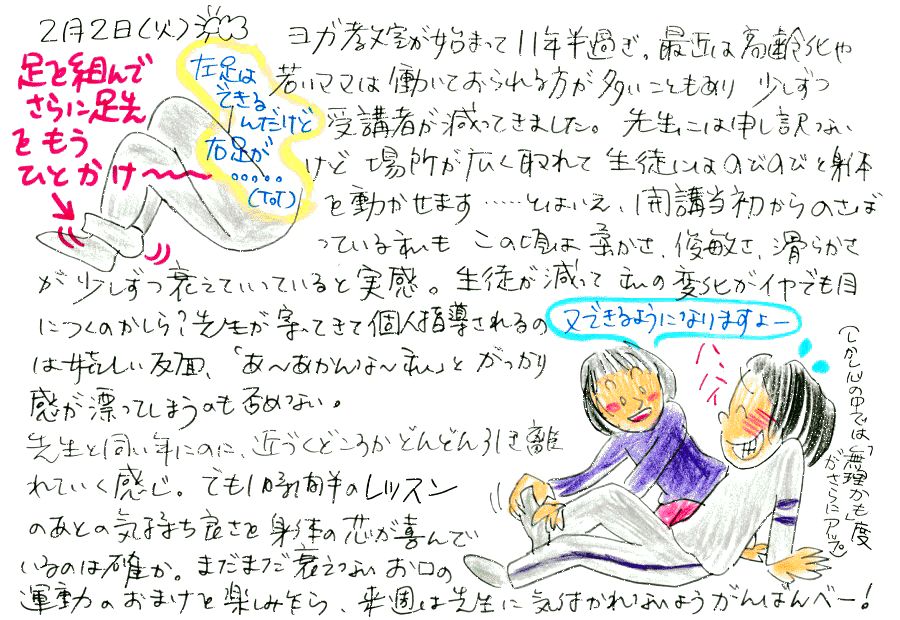 2月2日(火)
足を組んで
さらに足先
をもう
ひとかけ〜〜
左足は
できる
んだけど
右足が
・・・・・
(ToT)
ヨガ教室が始まって11年半過ぎ。最近は高齢化や
若いママは働いておられる方が多いこともあり 少しずつ
受講者が減ってきました。 先生には申し訳ない
けど 場所が広く取れて 生徒にはのびのびと身体
を動かせます……とはいえ、開講当初からのさば
っている私も この頃は 柔かさ、俊敏さ、滑らかさ
が 少しずつ衰えていっていると 実感。 生徒が減って 私の変化がイヤでも目
につくのかしら?先生が寄ってきて個人指導されるの
は嬉しい反面、「あ〜あかんな〜私」と がっかり
感が漂ってしまうのも否めない。
先生と同い年なのに、近づくどころか どんどん引き離
れていく感じ。でも1時間半のレッスン
のあとの気持ち良さを 身体の芯が喜んで
いるのは確か。まだまだ衰えない お口の
運動のおまけを楽しみながら、来週は先生に 気付かれないようがんばんべー!
又できるようになりますよー
ハハイ
(しかし心の中では「無理かも」度
がさらにアップ。)